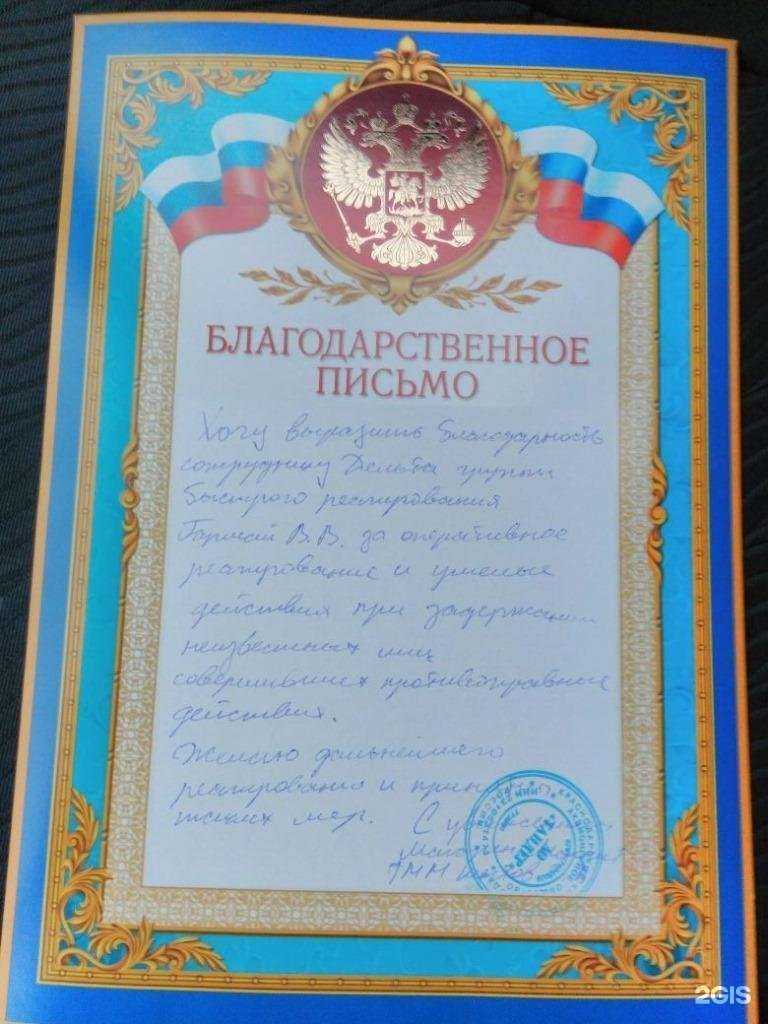 БЛАГОДАРСТВЕННОЕ
ПИСЬМО
Хочу выразить благодарность
сотруднику Дельта группы
быстрого реагирования
В.В. за оперативное
реагирование и умелые
действия при задержании
неизвестных лиц
совершивших противоправные
действия.
Желаю дальнейшего
реагирования и
таких мер. С
"ТАНДЕР"
2GIS